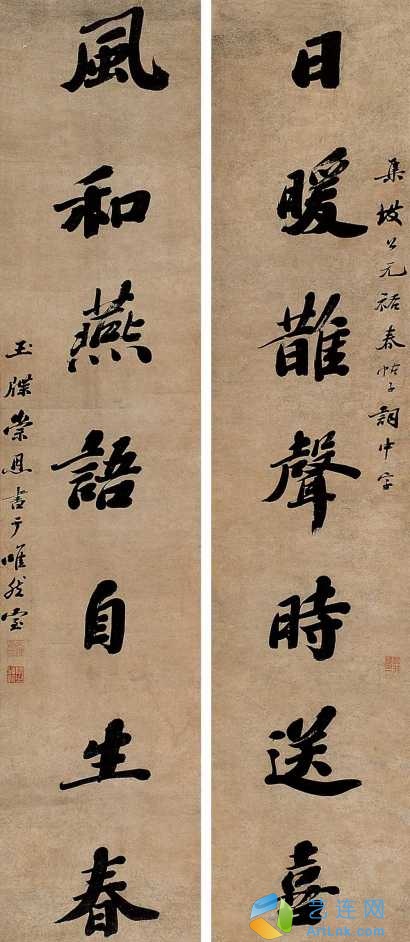 集坡公元祐春帖子詞中字
日暖䧿聲時送喜
風和燕語自生春
玉牒崇恩書于唯然室
艺连网
ArtLnk.com